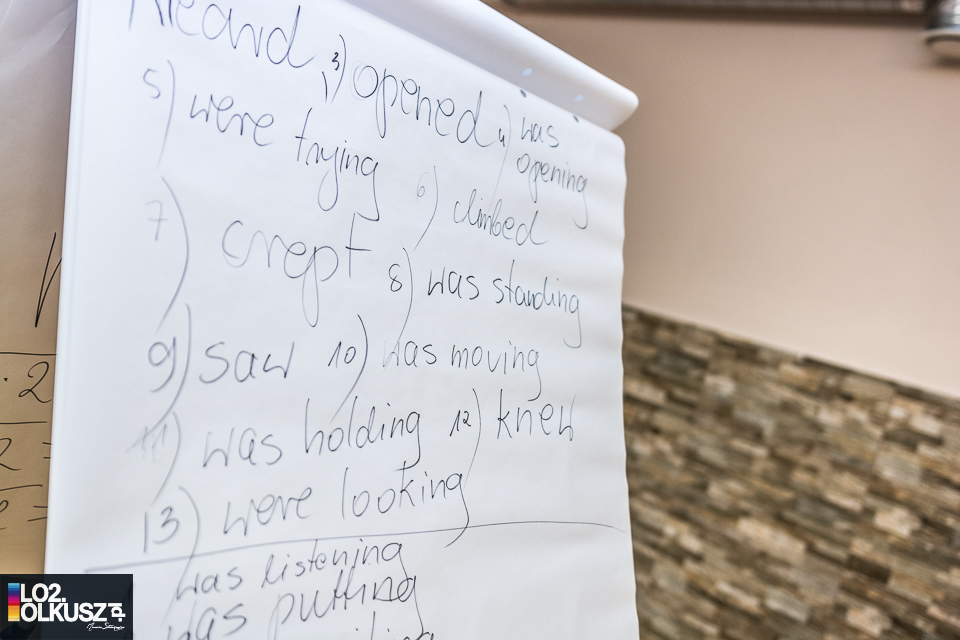 heard 3) opened 4) was opening
5) were trying 6) climbed
7) crept 8) was standing
9) saw 10) was moving
11) was holding 12) knew
13) were looking
was listening
was putting
2
2 =
=
LO2.
OLKUSZ.PL